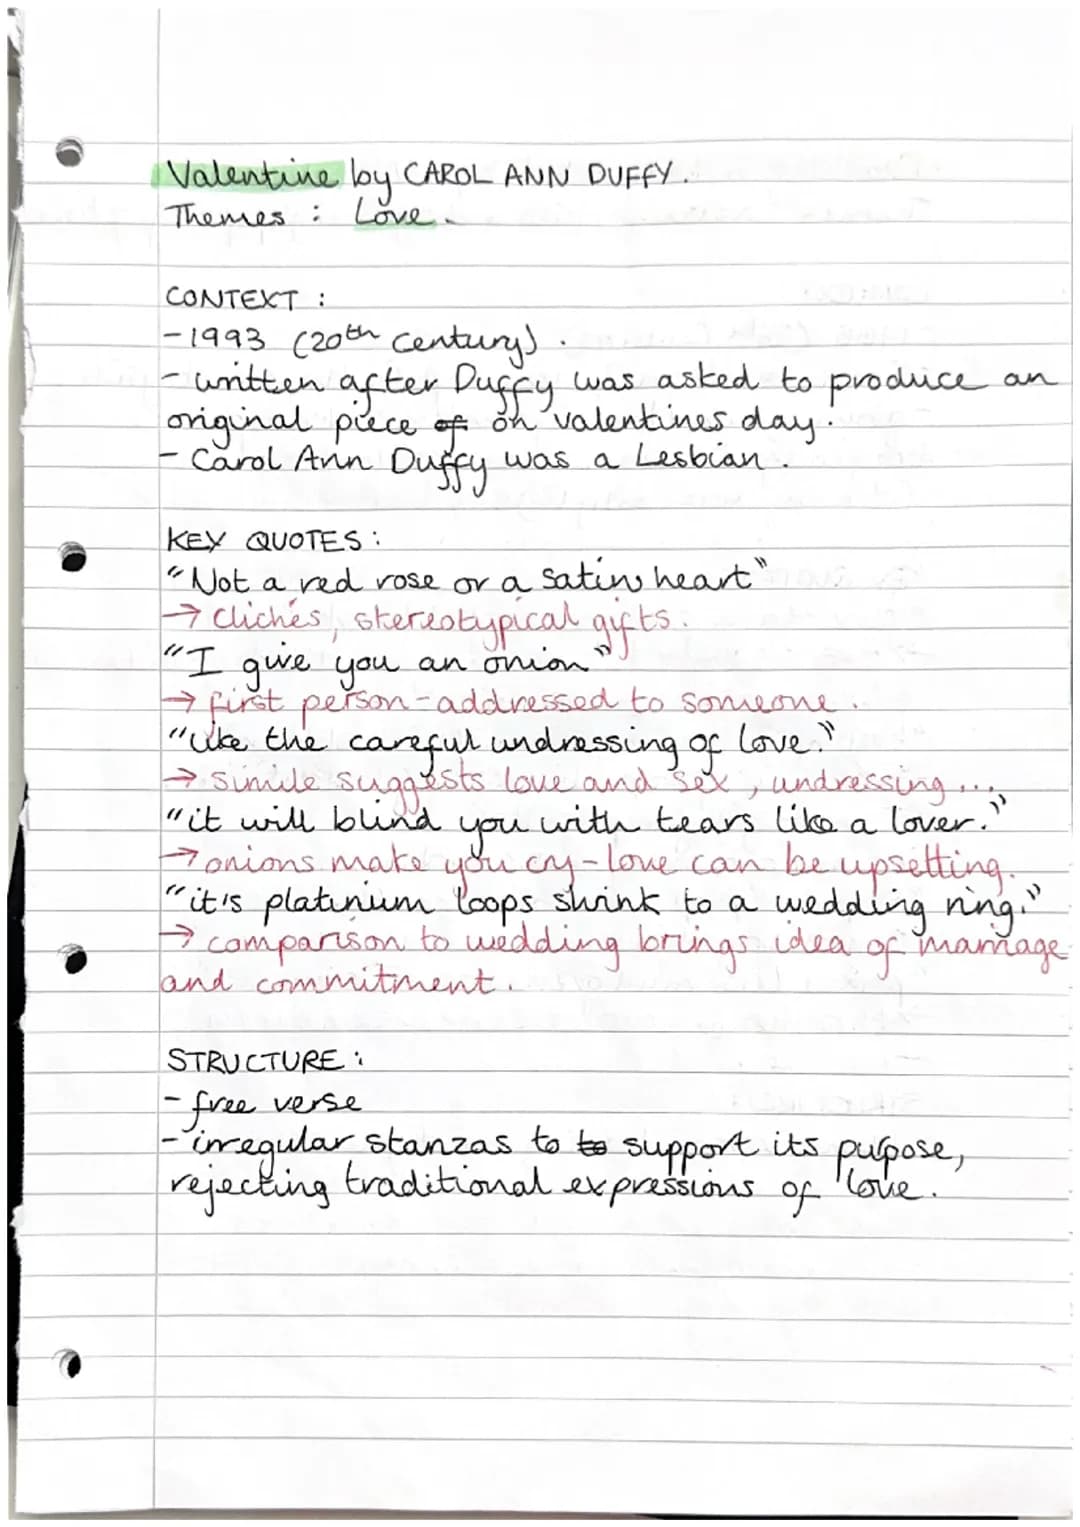 Valentine by CAROL ANN DUFFY.
Themes : Love.
CONTEXT :
-1993 (20th century).
- written after Duffy was asked to produce an
original piece of on valentines day.
- Carol Ann Duffy was a Lesbian.
KEY QUOTES:
"Not a red rose or a satin heart"
→ Clichés, stereotypical gifts.
"I give you an onion"
→ first person-addressed to someone.
"like the careful undressing of love."
→ simile suggests love and sex, undressing...
"it will blind you with tears like a lover."
→ onions make you cry-love can be upsetting.
"it's platinium loops shrink to a wedding ring."
→ comparison to wedding brings idea of marriage
and commitment.
STRUCTURE:
- free verse
- irregular stanzas to to support its purpose,
rejecting traditional expressions of love.